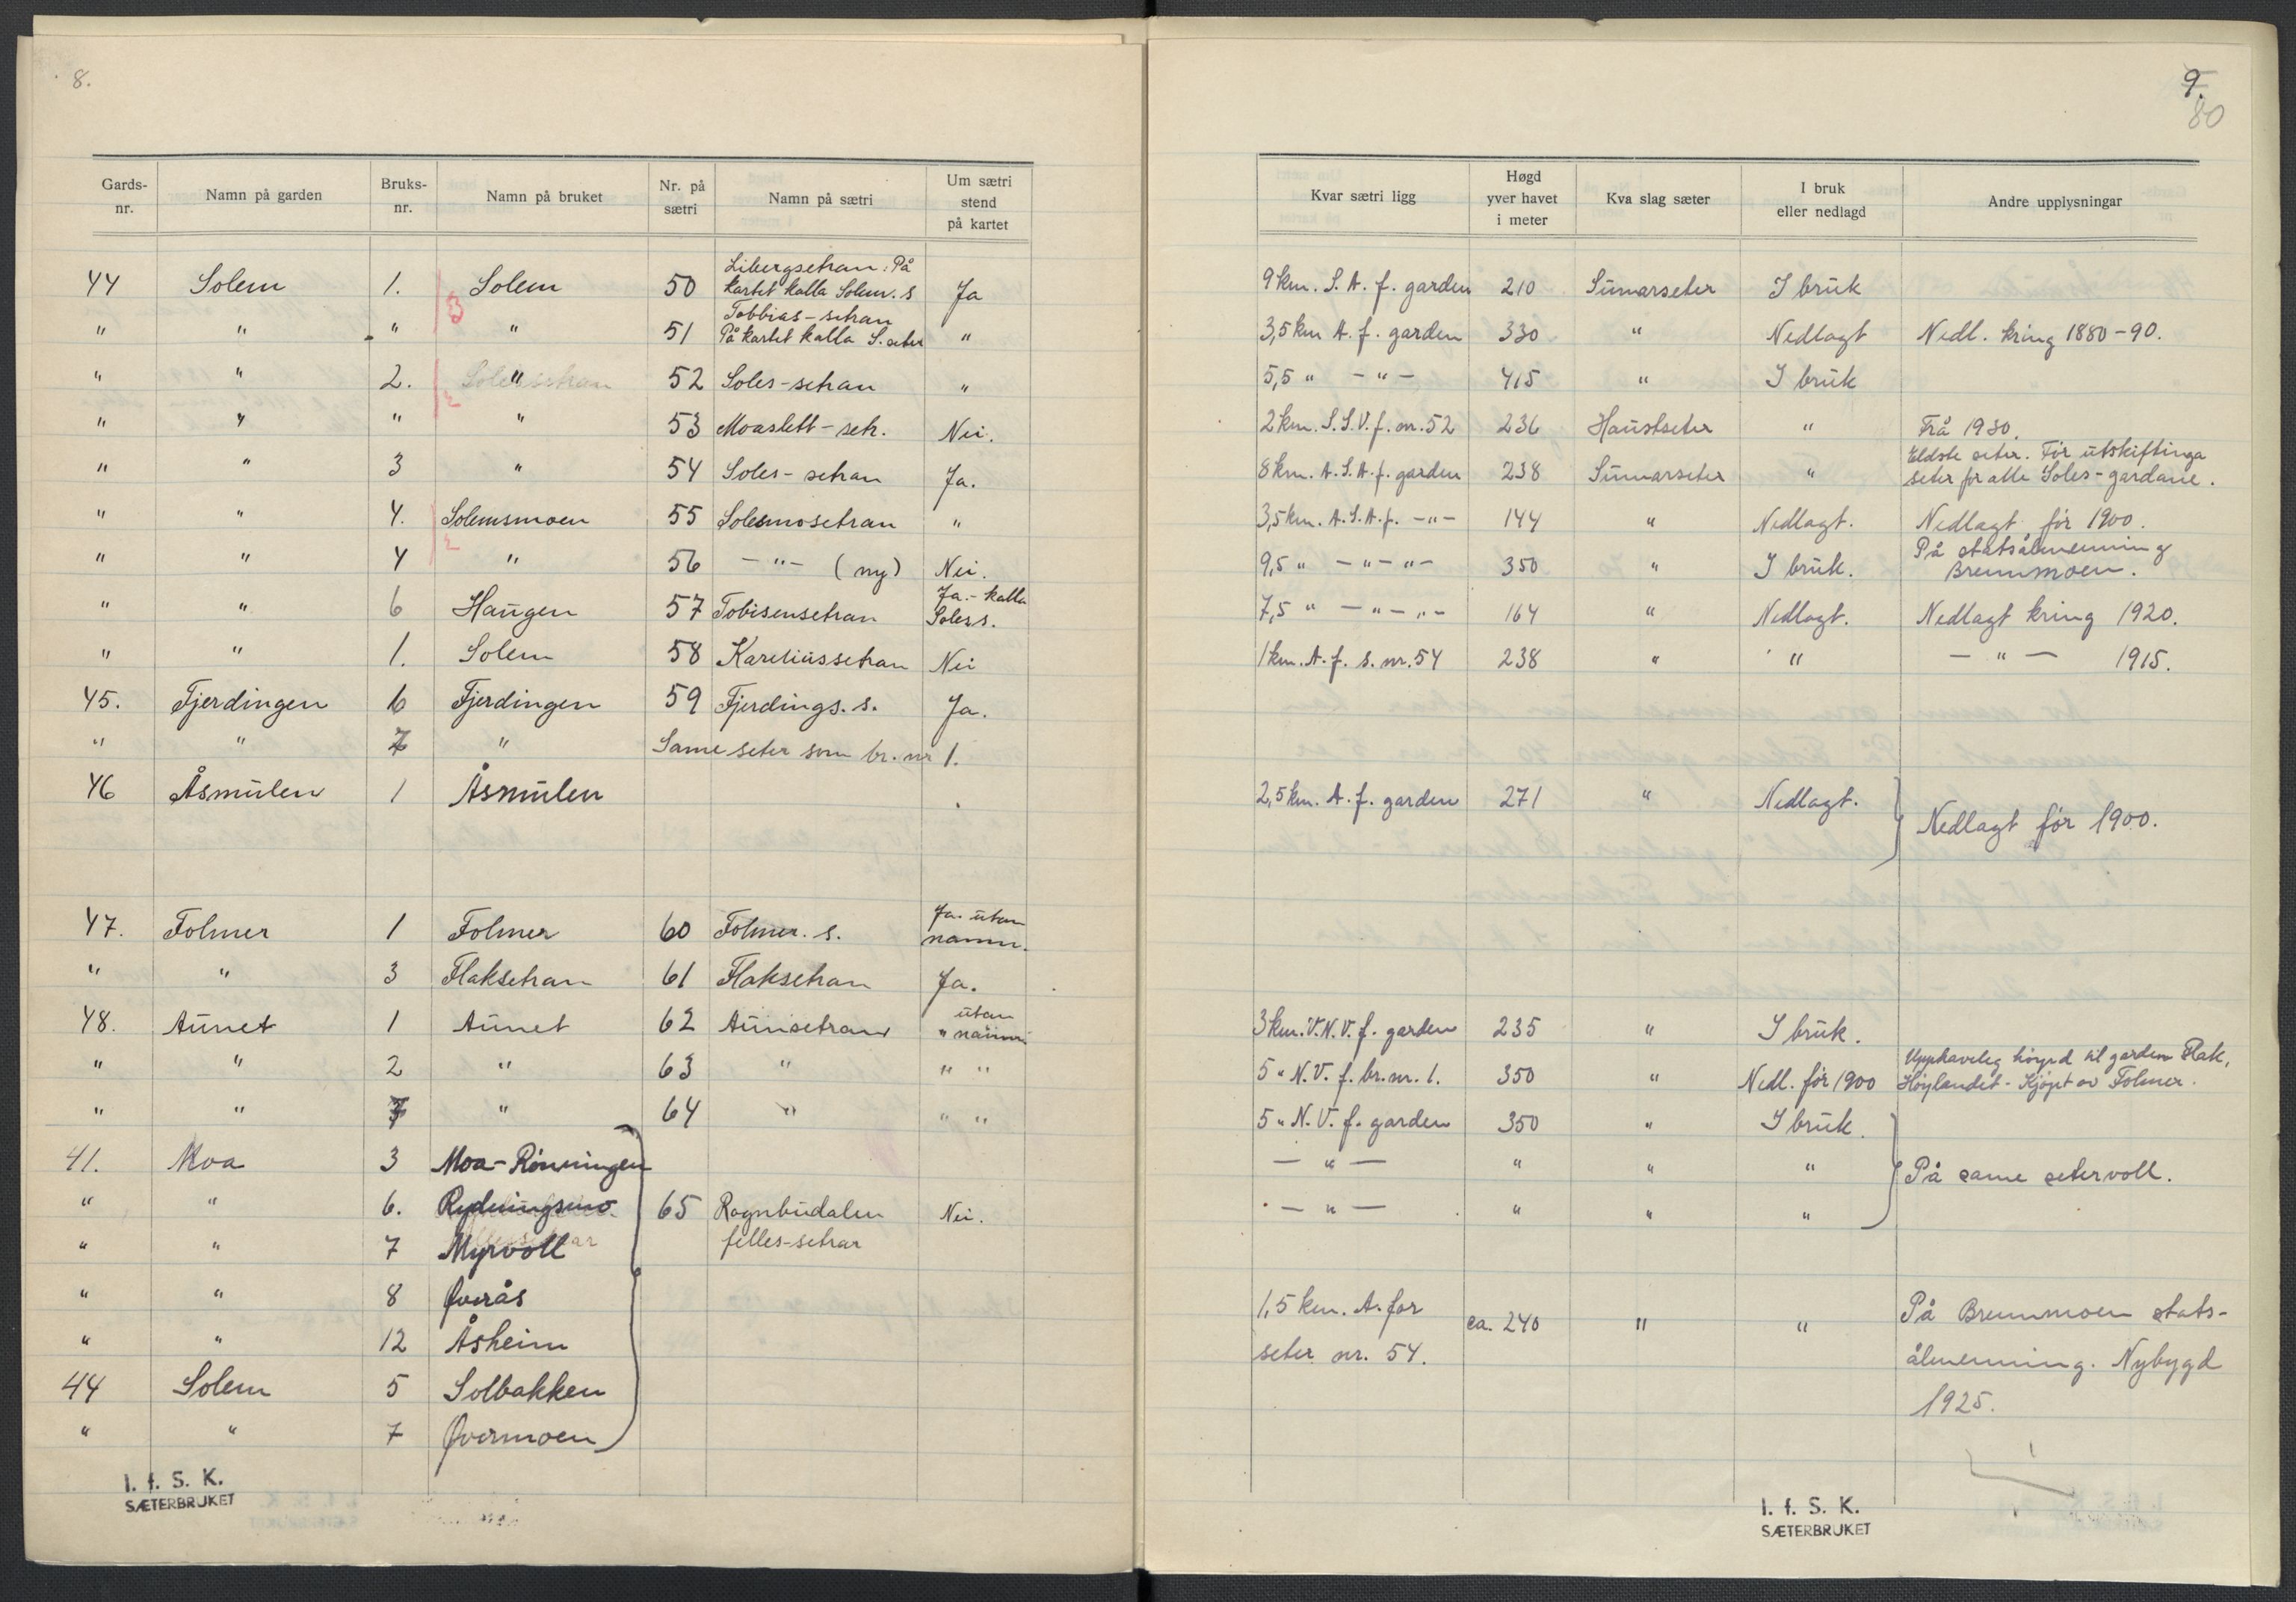 8.
Gards-nr. Namn på garden Bruks-nr. Namn på bruket Nr. på sætri Namn på sætri Um sætri stend på kartet
44 Solem 1. 3 Solem 50 Libergsetran: På kartet kalla Solem. s Ja
" " " " 51 Tobbias-setran På kartet kalla S. seter "
" " 2. 2 " 52 Soles-setran "
" " " " 53 Moaslett-setr. Nei.
" " 3 " 54 Soles-setran Ja.
" " 4. 2 Solemsmoen 55 Solesmosetran "
" " 4 " 56 - " - (ny) Nei.
" " 6 Haugen 57 Tobisensetran Ja.- kalla Soles s.
" " 1. Solem 58 Kareliussetran Nei
45. Fjerdingen 6 Fjerdingen 59 Fjerdings. s. Ja.
" " 7 " Same seter som br. nr 1.
46 Åsmulen 1 Åsmulen
47. Folmer 1 Folmer 60 Folmer. s. Ja. utan namn.
" " 3 Flaksetran 61 Flaksetran Ja.
48. Aunet 1 Aunet 62 Aunsetran " utan namn
" " 2 " 63 " " "
" " 7 " 64 " " "
41. Moa 3 Moa-Rønningen
" " 6. Rydningsmo 65 Rognbudalen Nei.
" " 7 Myrvoll felles-setrar
" " 8 Øverås
" " 12 Åsheim
44 Solem 5 Solbakken
" " 7 Øvermoen
I. f. S. K.
SÆTERBRUKET
9.
80
Kvar sætri ligg Høgd yver havet i meter Kva slag sæter I bruk eller nedlagd Andre upplysningar
9 km. S. A. f. garden 210 Sumarseter I bruk
3,5 km A. f. garden 330 " Nedlagt Nedl. kring 1880-90.
5,5 " - " - 415 " I bruk
2 km. S.S.V. f. nr. 52 236 Haustseter " Frå 1930.
8 km. A.S.A. f. garden 238 Sumarseter " Eldste seter. Før utskiftinga seter for alle Soles-gardane.
3,5 km. A.S.A. f. - " - 144 " Nedlagt. Nedlagt før 1900.
9,5 " - " - " - 350 " I bruk. På statsålmenning Brennmoen.
7,5 " - " - " - 164 " Nedlagt. Nedlagt kring 1920.
1 km. A. f. s. nr. 54 238 " " - " - 1915.
2,5 km. A. f. garden 271 " Nedlagt. Nedlagt før 1900.
3 km. V.N.V. f. garden 235 " I bruk.
5 " N.V. f. br. nr. 1. 350 " Nedl. før 1900 Upphaveleg høyrd til garden Flak, Høylandet - Kjøpt av Folmer.
5 " N.V. f. garden 350 " I bruk.
- " - " " " På same setervoll.
- " - " " "
1,5 km. A. for seter nr. 54. ca. 240 " " På Brennmoen stats-
ålmenning. Nybygd
1925.
I. f. S. K.
SÆTERBRUKET